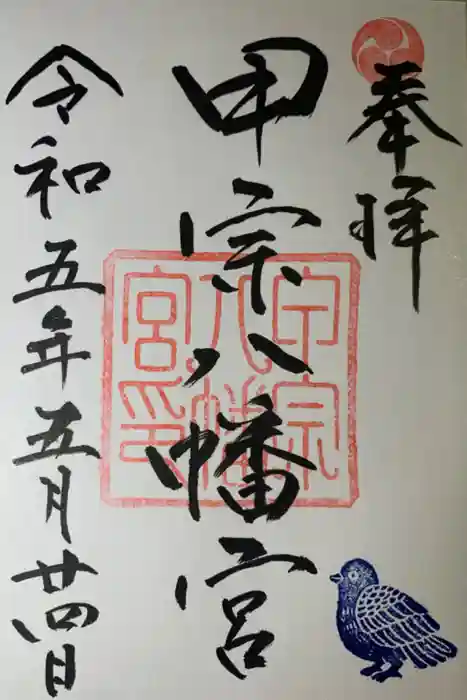 奉拝
甲宗八幡宮
甲宗
八幡
宮印
令和五年五月廿四日